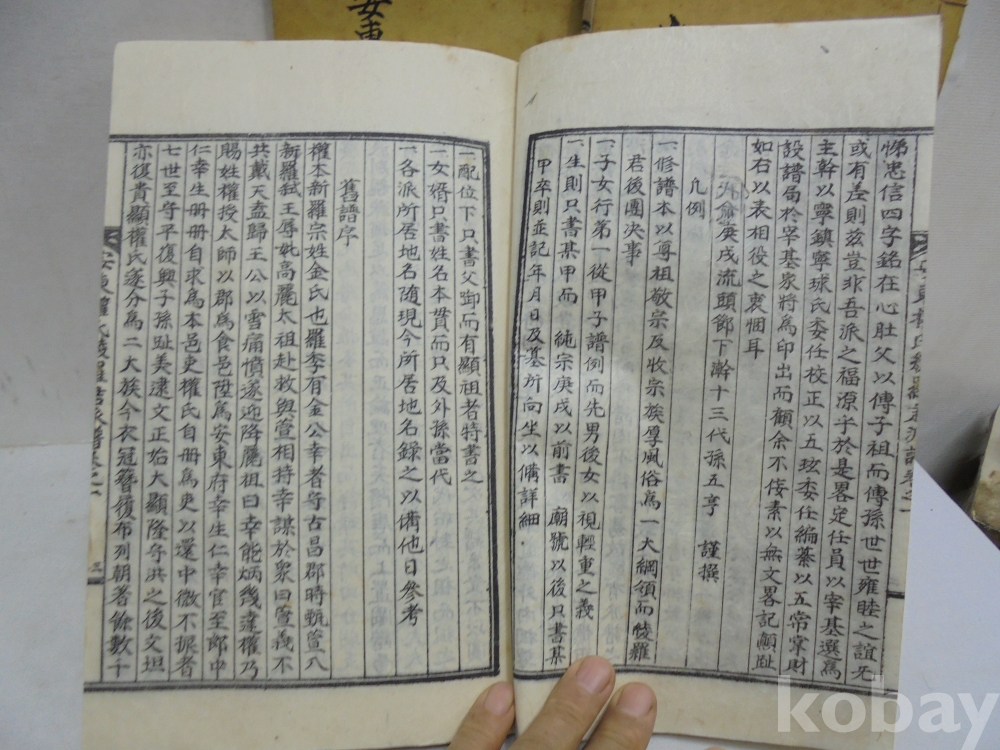 悌忠信四字銘在心肚父以傳子祖而傳孫世世雍睦之誼无
或有差則茲豈非吾派之福源乎於是畧定任員以宰基選為
主幹以寧鎮寧球氏委任校正以五玹委任編纂以五常掌財
設譜局於宰基家將為印出而顧余不侫素以無文畧記顛趾
如右以表相役之衷悃耳
庚戌流頭節下澣十三代孫五亨 謹撰
凡例
一修譜本以尊祖敬宗及收宗族厚風俗為一大綱領而綾羅
君後團决事
一子女行第一從甲子譜例而先男後女以視輕重之義
一生則只書某甲而 純宗庚戌以前書 廟號以後只書某
甲卒則並記年月日及墓所向坐以備詳細
一配位下只書父啣而有顯祖者特書之
一女婿只書姓名本貫而只及外孫當代
一各派所居地名随現今所居地名録之以備他日參考
舊譜序
權本新羅宗姓金氏也羅季有金公幸者守古昌郡時甄萱入
新羅弑王辱妣高麗太祖赴救與萱相持幸謀於衆曰萱義不
共戴天盍歸王公以雪痛憤遂迎降麗祖曰幸能炳幾達權乃
賜姓權授太師以郡為食邑陞為安東府幸生仁幸官至郎中
仁幸生册册自求為本邑吏權氏自册為吏以還中微不振者
七世至守平復興子孫趾美逮文正始大顯隆守洪之後文坦
亦復貴顯權氏遂分為二大族今衣冠簪復布列朝著餘數千
安東
kobay